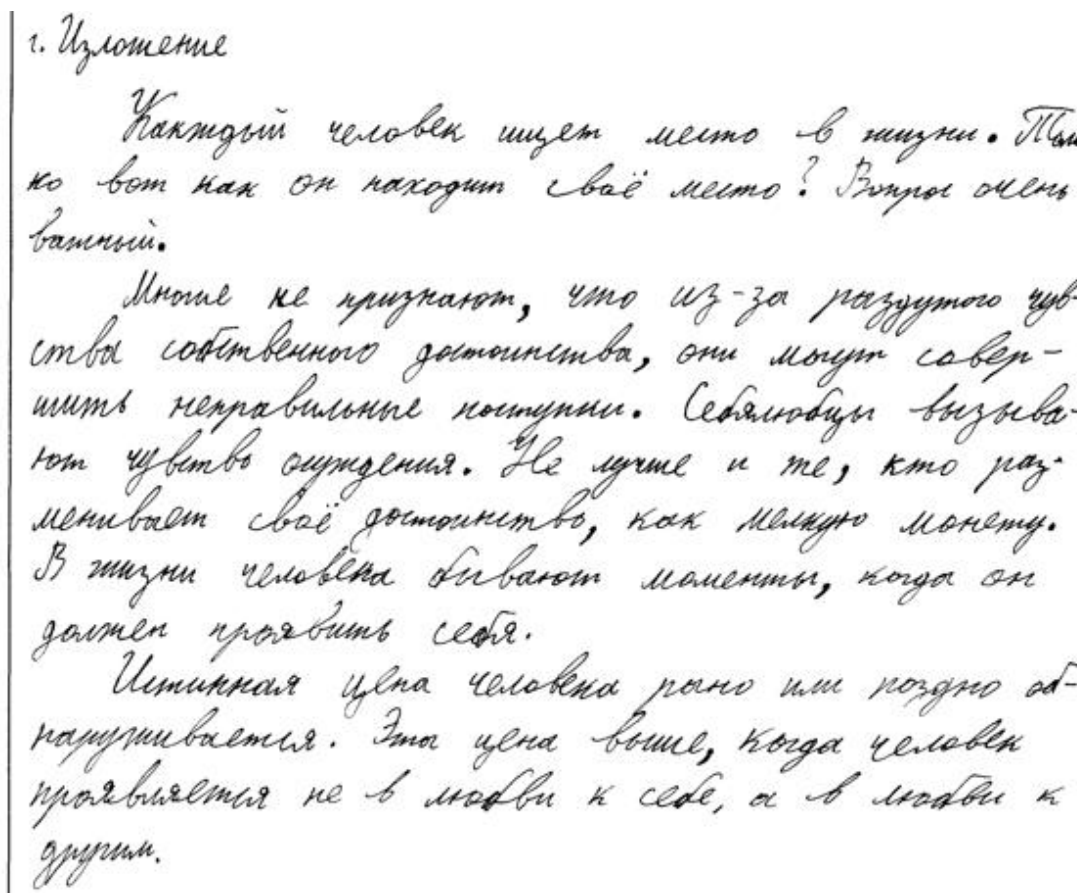 1. Изложение
Каждый человек ищет место в жизни. Толь
ко вот как он находит своё место? Вопрос очень
важный.
Многие не признают, что из-за раздутого чув-
ства собственного достоинства, они могут совер-
шить неправильные поступки. Себялюбцы вызыва-
ют чувство осуждения. Не лучше и те, кто раз-
менивает своё достоинство, как мелкую монету.
В жизни человека бывают моменты, когда он
должен проявить себя.
Истинная цена человека рано или поздно об-
наруживается. Эта цена выше, когда человек
проявляется не в любви к себе, а в любви к
другим.